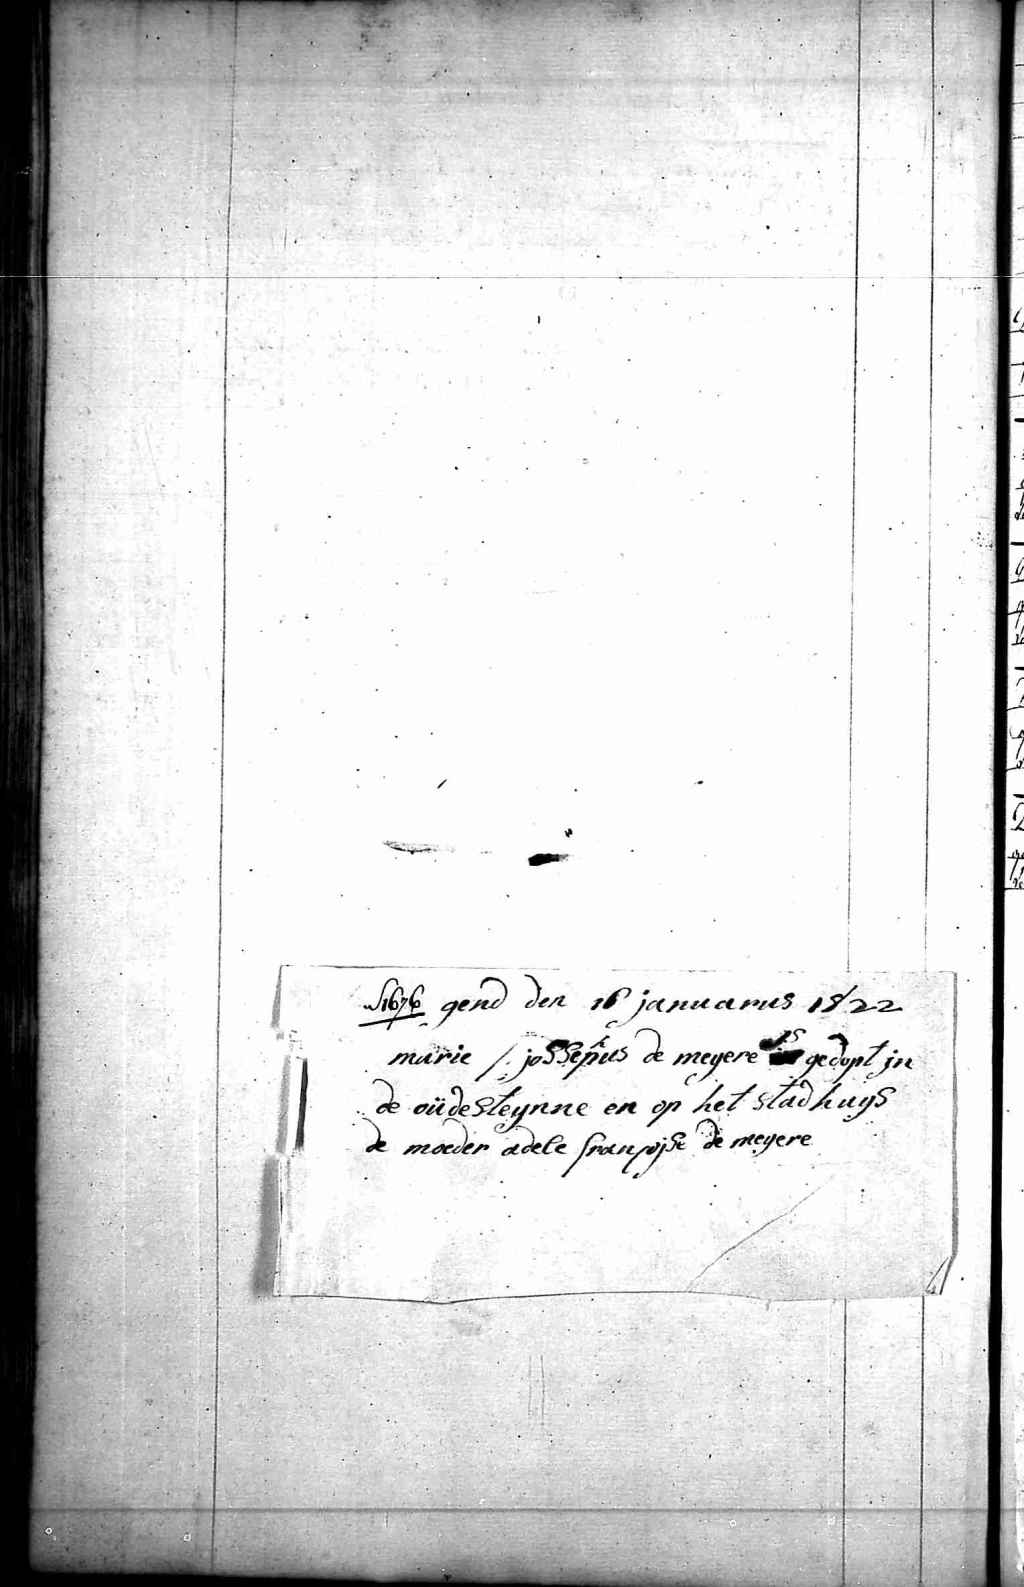 S1676 gend den 16 januarius 1822
marie / jossephus de meyere is gedopt jn
de oüdesteynne en op het stadhuys
de moeder adele franpojse de meyere